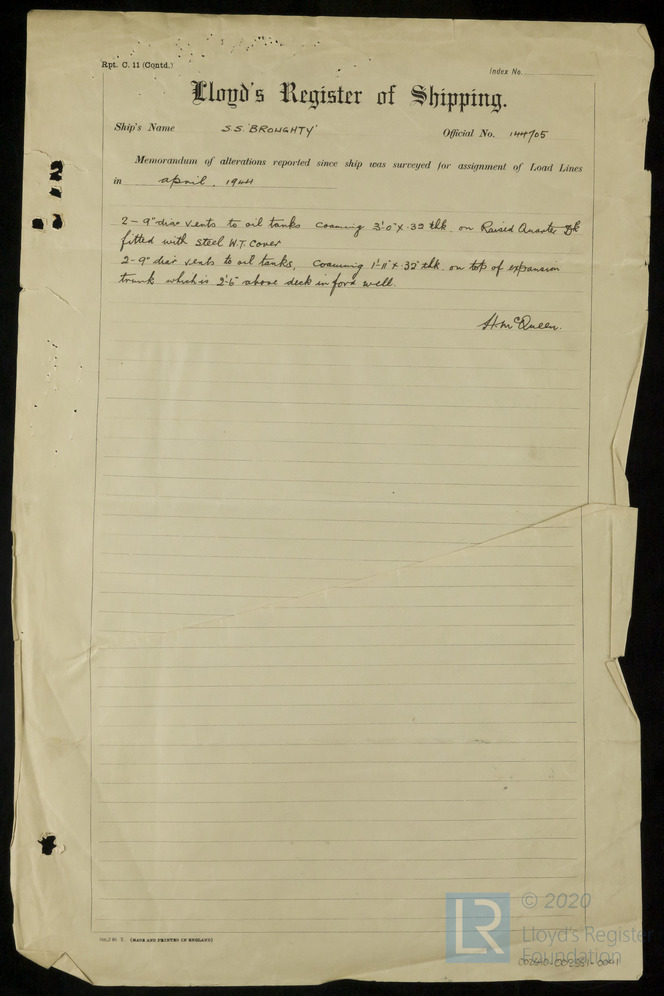 Rpt. C. 11 (Contd.)
Index No.
Lloyd's Register of Shipping.
Ship's Name S.S. 'BROUGHTY' Official No. 144705
Memorandum of alterations reported since ship was surveyed for assignment of Load Lines
in april. 1944
2 - 9" diar vents to oil tanks coaming 3'0" x .32 thk. on Raised Quarter Dk
fitted with steel W.T. cover
2 - 9" diar vents to oil tanks, coaming 1'11" x .32 thk. on top of expansion
trunk which is 2'6" above deck in ford well.
H. McQueen.
T. (MADE AND PRINTED IN ENGLAND)
© 2020
LR
Lloyd's Register
Foundation